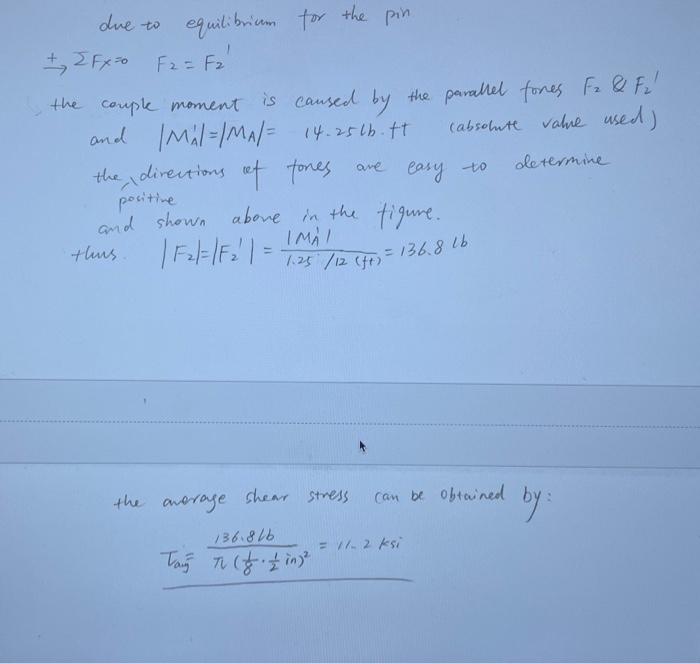 due to equilibrium for the pin
+→ ΣFx=0 F2 = F2'
the couple moment is caused by the parallel forces F2 & F2'
and |MA'|=|MA|= 14.25lb.ft (absolute value used)
the positive directions of forces are easy to determine
and shown above in the figure.
thus. |F2|=|F2'| = |MA'| / 1.25/12 (ft) = 136.8 lb
the average shear stress can be obtained by:
τavg = 136.8lb / π(1/8 · 1/2 in)² = 11.2 ksi